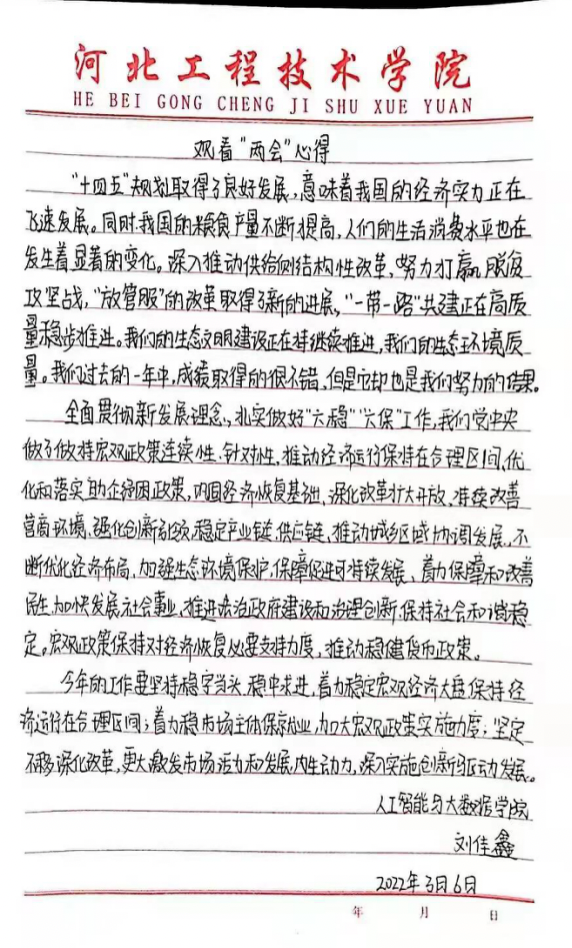 河北工程技术学院
HE BEI GONG CHENG JI SHU XUE YUAN
观看“两会”心得
“十四五”规划取得了良好发展,意味着我国的经济实力正在
飞速发展。同时,我国的粮食产量不断提高,人们的生活消费水平也在
发生着显著的变化。深入推动供给侧结构性改革,努力打赢脱贫
攻坚战,“放管服”的改革取得了新的进展,“一带一路”共建正在高质
量稳步推进。我们的生态文明建设正在持继续推进,我们的生态环境质
量。我们过去的一年中,成绩取得的很不错,但是它却也是我们努力的结果。
全面贯彻新发展理念,扎实做好“六稳”“六保”工作,我们党中央
做了做持宏观政策连续性、针对性,推动经济运行保持在合理区间,优
化和落实助企纾困政策,巩固经济恢复基础,深化改革扩大开放,持续改善
营商环境,强化创新引领,稳定产业链供应链,推动城乡区域协调发展,不
断优化经济布局,加强生态环境保护,保障促进可持续发展,着力保障和改善
民生,加快发展社会事业,推进法治政府建设和治理创新,保持社会和谐稳
定。宏观政策保持对经济恢复必要支持力度,推动稳健货币政策。
今年的工作要坚持稳字当头,稳中求进,着力稳定宏观经济大盘,保持经
济运行在合理区间;着力稳市场主体保就业,加大宏观政策实施力度;坚定
不移深化改革,更大激发市场活力和发展内生动力,深入实施创新驱动发展。
人工智能与大数据学院
刘佳鑫
2022年3月6日
年 月 日